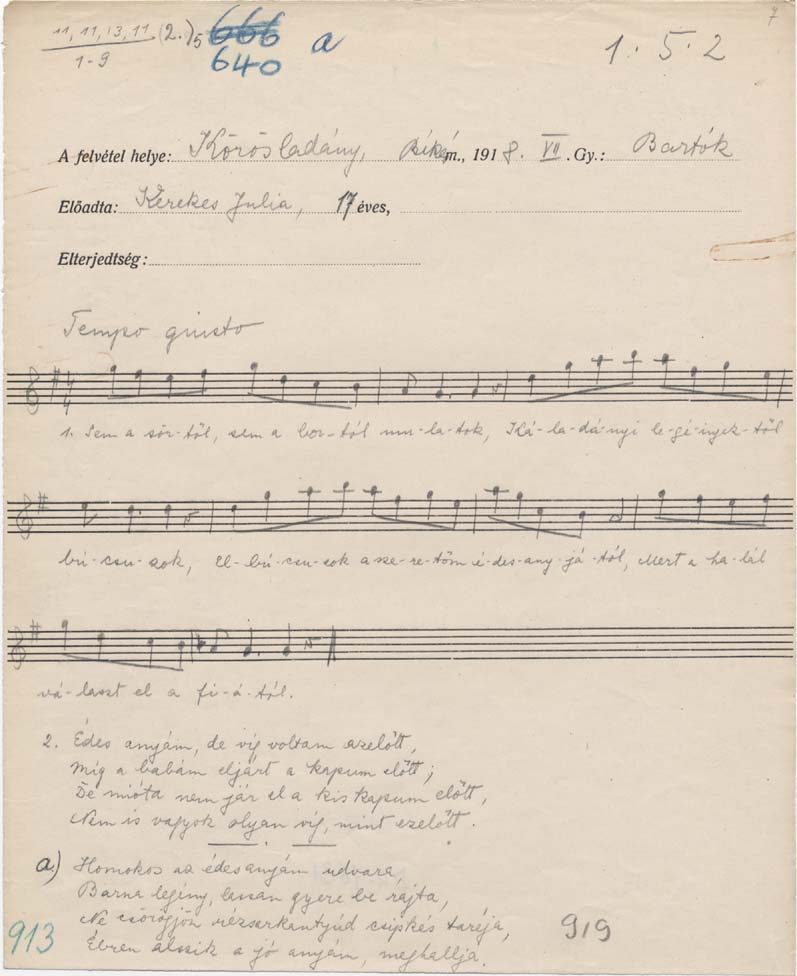 7
11, 11, 13, 11 (2.)5 666 a 1. 5. 2
1-9 640
A felvétel helye: Körösladány, Békés m., 1918. VII. Gy.: Bartók
Előadta: Kerekes Julia, 17 éves,
Elterjedtség:
Tempo giusto
4
4
1. Sem a sör-től, sem a bor-tól mu-la-tok, Ká-la-dá-nyi le-gé-nyek-től
bú-csu-zok, El-bú-csu-zok a sze-re-tőm é-des-any-já-tól, Mert a ha-lál
vá-laszt el a fi-á-tól.
2. Édes anyám, de víg voltam azelőtt,
Míg a babám eljárt a kapum előtt;
De mióta nem jár el a kis kapum előtt,
Nem is vagyok olyan víg, mint ezelőtt.
a.) Homokos az édesanyám udvara,
Barna legény, lassan gyere be rajta,
Ne csörögjön rézsarkantyúd csipkés taréja,
Ébren alszik a jó anyám, meghallja.
913 919